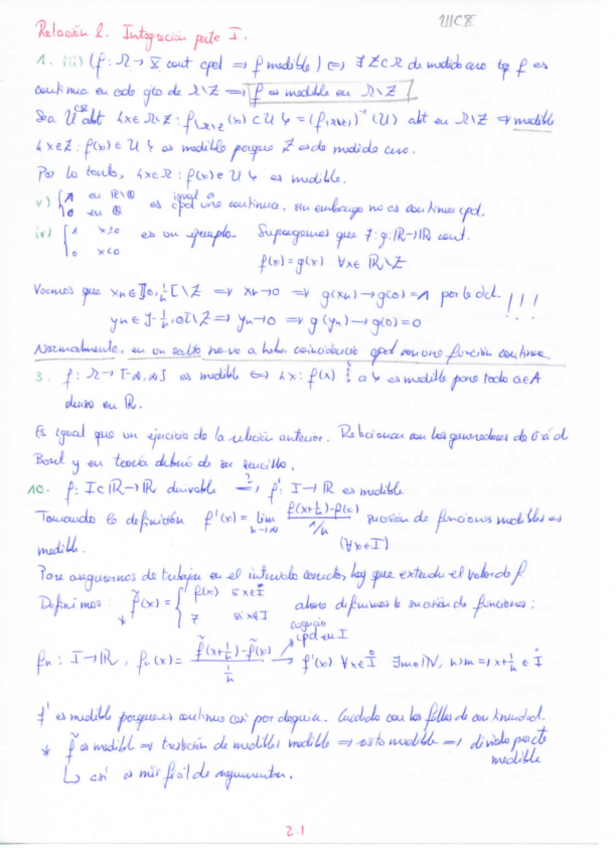 Relación 2. Integración parte I.
1. iii) (f: Ω → X cont cpd ⇒ f medible) ⇔ ∃ Z⊂Ω de medida cero tq f es
continua en cada pto de Ω\Z ⟹ f es medible en Ω\Z
Sea U abt {x∈Ω\Z : f|Ω\Z (x) ⊂ U} = (f|Ω\Z)⁻¹ (U) abt en Ω\Z ⇒ medible
{x∈Z : f(x) ∈ U} es medible porque Z es de medida cero.
Por lo tanto, {x∈Ω : f(x) ∈ U} es medible.
v) { 1 en ℝ\ℚ 0 en ℚ es igual a cpd una continua, sin embargo no es continua cpd.
iv) { 1 x≥0 0 x<0 es un ejemplo. Supongamos que ∃ g: ℝ→ℝ cont.
f(x) = g(x) ∀x∈ ℝ\Z
Veamos que xn∈]0, 1/n[ \Z ⇒ xn→0 ⇒ g(xn)→g(0)=1 por la def. !!!
yn∈]-1/n, 0[ \Z ⇒ yn→0 ⇒ g(yn)→g(0)=0
Normalmente, en un salto no va a haber coincidencia cpd con una función continua
3. f: Ω → [-∞,∞] es medible ⇔ {x : f(x) a} es medible para todo a∈A
denso en ℝ.
Es igual que un ejercicio de la relación anterior. Relacionar con los generadores de σ-á d
Borel y en teoría debería de ser sencillo.
10. f: I⊂ℝ→ℝ derivable ⟹? f': I→ℝ es medible
Tomando la definición f'(x) = lim n→∞ f(x+1/n)-f(x) / 1/n sucesión de funciones medibles es
medible. (∀x∈I)
Para asegurarnos de trabajar en el intervalo correcto, hay que extender el valor de f
Definimos: * f̃(x) = { f(x) si x∈I 7 si x∉I ahora definimos la sucesión de funciones:
fn : I→ℝ, fn(x) = f̃(x+1/n)-f̃(x) / 1/n → cpd en I f'(x) ∀x∈I̊ ∃m∈ℕ, n>m ⇒ x+1/n ∈ I̊
f' es medible porque es continua casi por doquier. Cuidado con los fallos de continuidad.
* f̃ es medible ⇒ traslación de medibles medible ⇒ resta medible ⇒ dividir por cte
medible
↳ así es más fácil de argumentar.
2.1